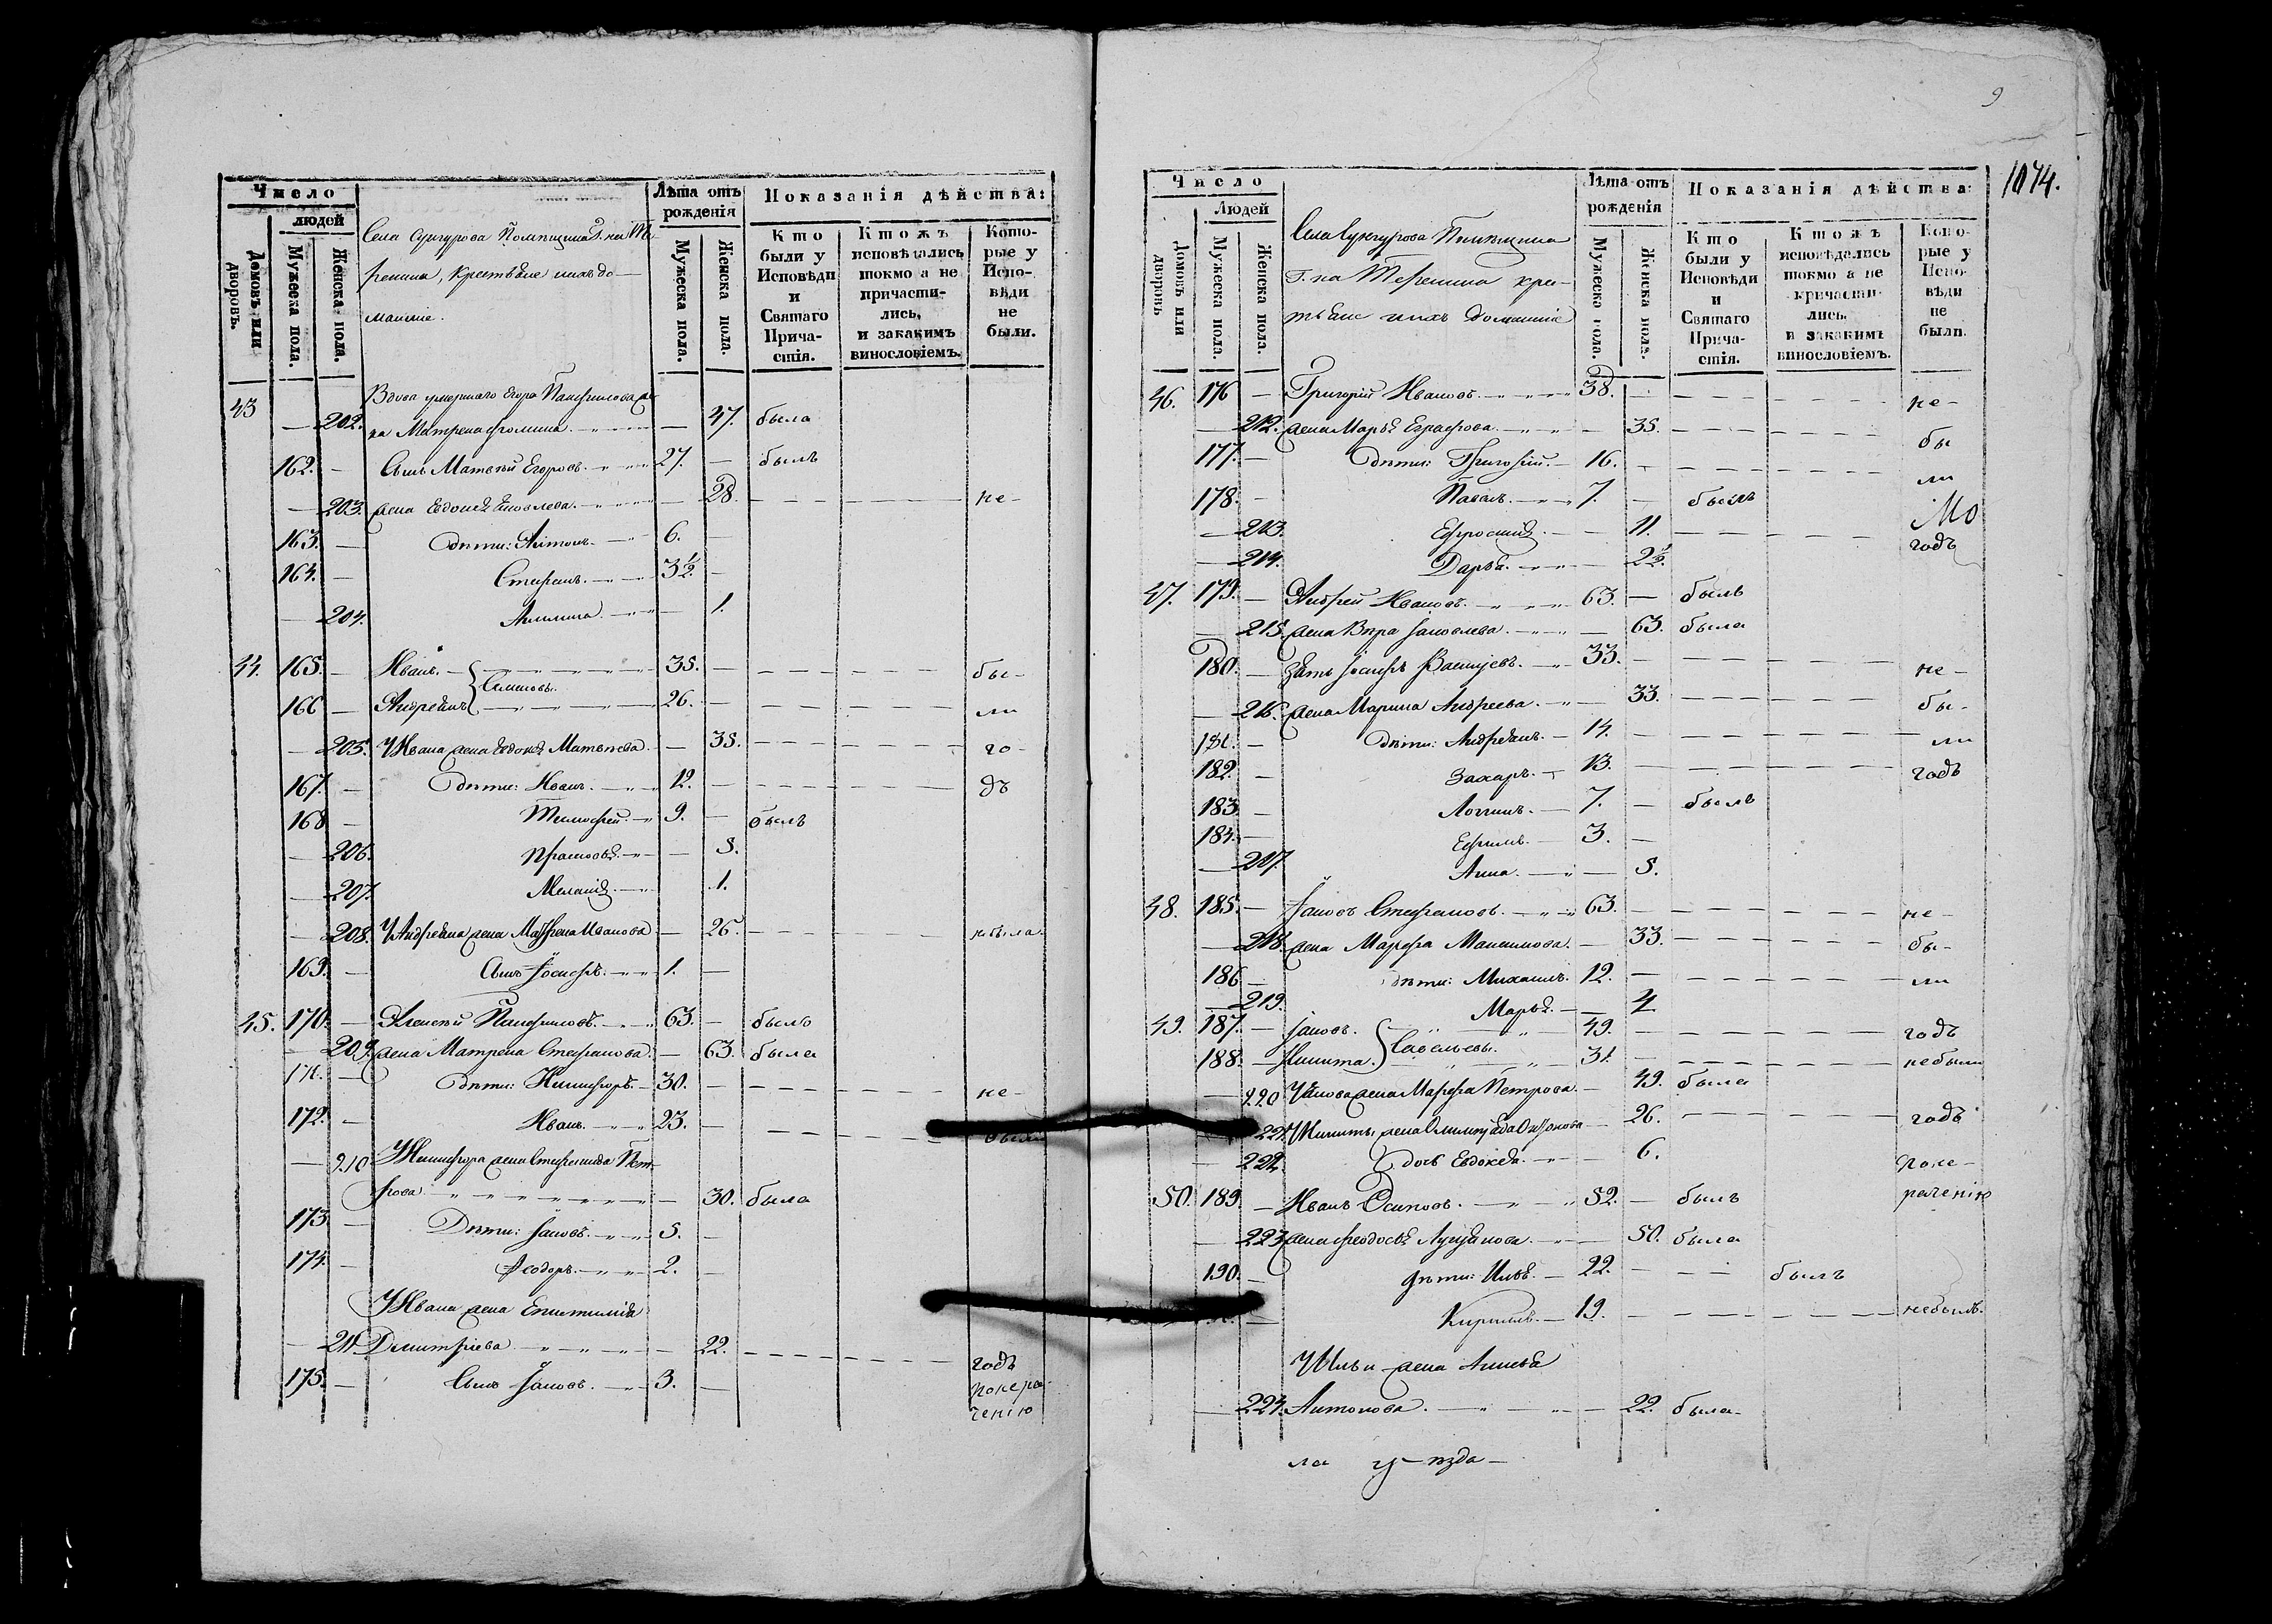 Число
людей
Домовъ или дворовъ.
Мужеска пола.
Женска пола.
Села Сунгурова Помѣщика Г. на Те-
ренина, крестьяне и ихъ до-
машніе.
Лѣта отъ рожденія
Мужеска пола.
Женска пола.
Показанія дѣйства:
Кто были у Исповѣди и Святаго Прича-стія.
Ктожъ исповѣдались токмо а не причасти-лись, и закакимъ винословіемъ.
Кото-рые у Испо-вѣди не были.
43 Вдова умершаго Егора Панфилова же-
— 202. на Матрена Фомина — 47. была
162. — Сынъ Матвѣй Егоровъ. 27. — былъ
— 203. жена Евдокія Яковлева. — 28. не-
163. — дѣти: Антонъ. 6. —
164. — Стефанъ. 3½. —
— 204. Акилина. — 1.
44. 165. — Иванъ. 35. — бы-
Семеновы.
166 — Андреянъ 26. — ли
— 205. У Ивана жена Евдокія Матвѣева. — 35. го-
167. — дѣти: Иванъ. 12. — дъ
168 — Тимофей. 9. — былъ
— 206. Прасковья. — 5.
— 207. Меланія. — 1.
— 208. У Андреяна жена Матрена Иванова — 26. небыла.
169. — Сынъ Іосифъ. 1. —
45. 170. — Алексѣй Панфиловъ. 63. — былъ
— 209. жена Матрена Стефанова. — 63. была
171. — дѣти: Никифоръ. 30. — не-
172. — Иванъ. 23. — были
— 210 У Никифора жена Степанида Пет-
рова — 30. была
173. — Дѣти: Іаковъ. 5. —
174. — Ѳеодоръ. 2. —
У Ивана жена Епистимія
— 211. Димитріева — 22. годъ
175. — Сынъ Іаковъ. 3. — понера-
ченію
9
1074.
Число
Людей
Домовъ или дворовъ
Мужеска пола.
Женска пола.
Села Сунгурова Помѣщика
Г. на Теренина кре-
стьяне и ихъ домашніе
Лѣта отъ рожденія
Мужеска пола.
Женска пола.
Показанія дѣйства:
Кто были у Исповѣди и Святаго Прича-стія.
Ктожъ исповѣдались токмо а не причасти-лись. и закакимъ винословіемъ.
Кото-рые у Испо-вѣди не были.
46. 176 — Григорій Ивановъ. 38. — не-
— 212. жена Марья Евграфова. — 35. бы
177. — дѣти: Григорій. 16. — ли
178. — Павелъ. 7. — былъ
— 213. Ефросинія. — 11. годъ
— 214. Дарья. — 2½.
47. 179. — Андрей Ивановъ. 63. — былъ
— 215. жена Вѣра Іаковлева. — 63. была
180. — Зять Іосифъ 33. — не-
— 216. жена Марина Андреева. — 33. бы-
181. — дѣти: Андреянъ. 14. — ли
182. — Захаръ. 13. — годъ
183. — Логинъ. 7. — былъ
184. — Ефимъ. 3. —
— 217. Анна. — 5.
48. 185. — Іаковъ Стефановъ. 63. — не-
— 218. жена Марфа Максимова. — 33. бы-
186 — дѣти: Михаилъ. 12. — ли
— 219. Марья. — 4
49. 187. — Іаковъ. 49. — годъ
Савельевы.
188. — Никита. 31. — небыли
— 220 У Іакова жена Марфа Петрова. — 49. была
— 221. У Никиты жена Олимпіада — 26. годъ
— 222. дочь Евдокія. — 6. поне-
50. 189. — Иванъ Осиповъ. 52. — былъ раченію
— 223. жена Ѳеодосья Лукьянова. — 50. была
190. — дѣти: Илья. 22. — былъ
— Кирилъ. 19. — небылъ.
У Ильи жена Аксинья
— 224. Антонова. — 22. была
ла уѣзда